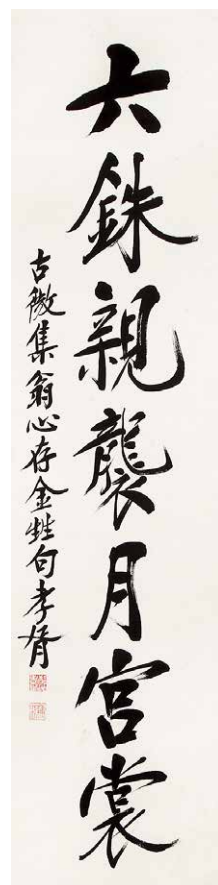 六銖親襲月宮裳
古微集翁心存金甡句孝胥